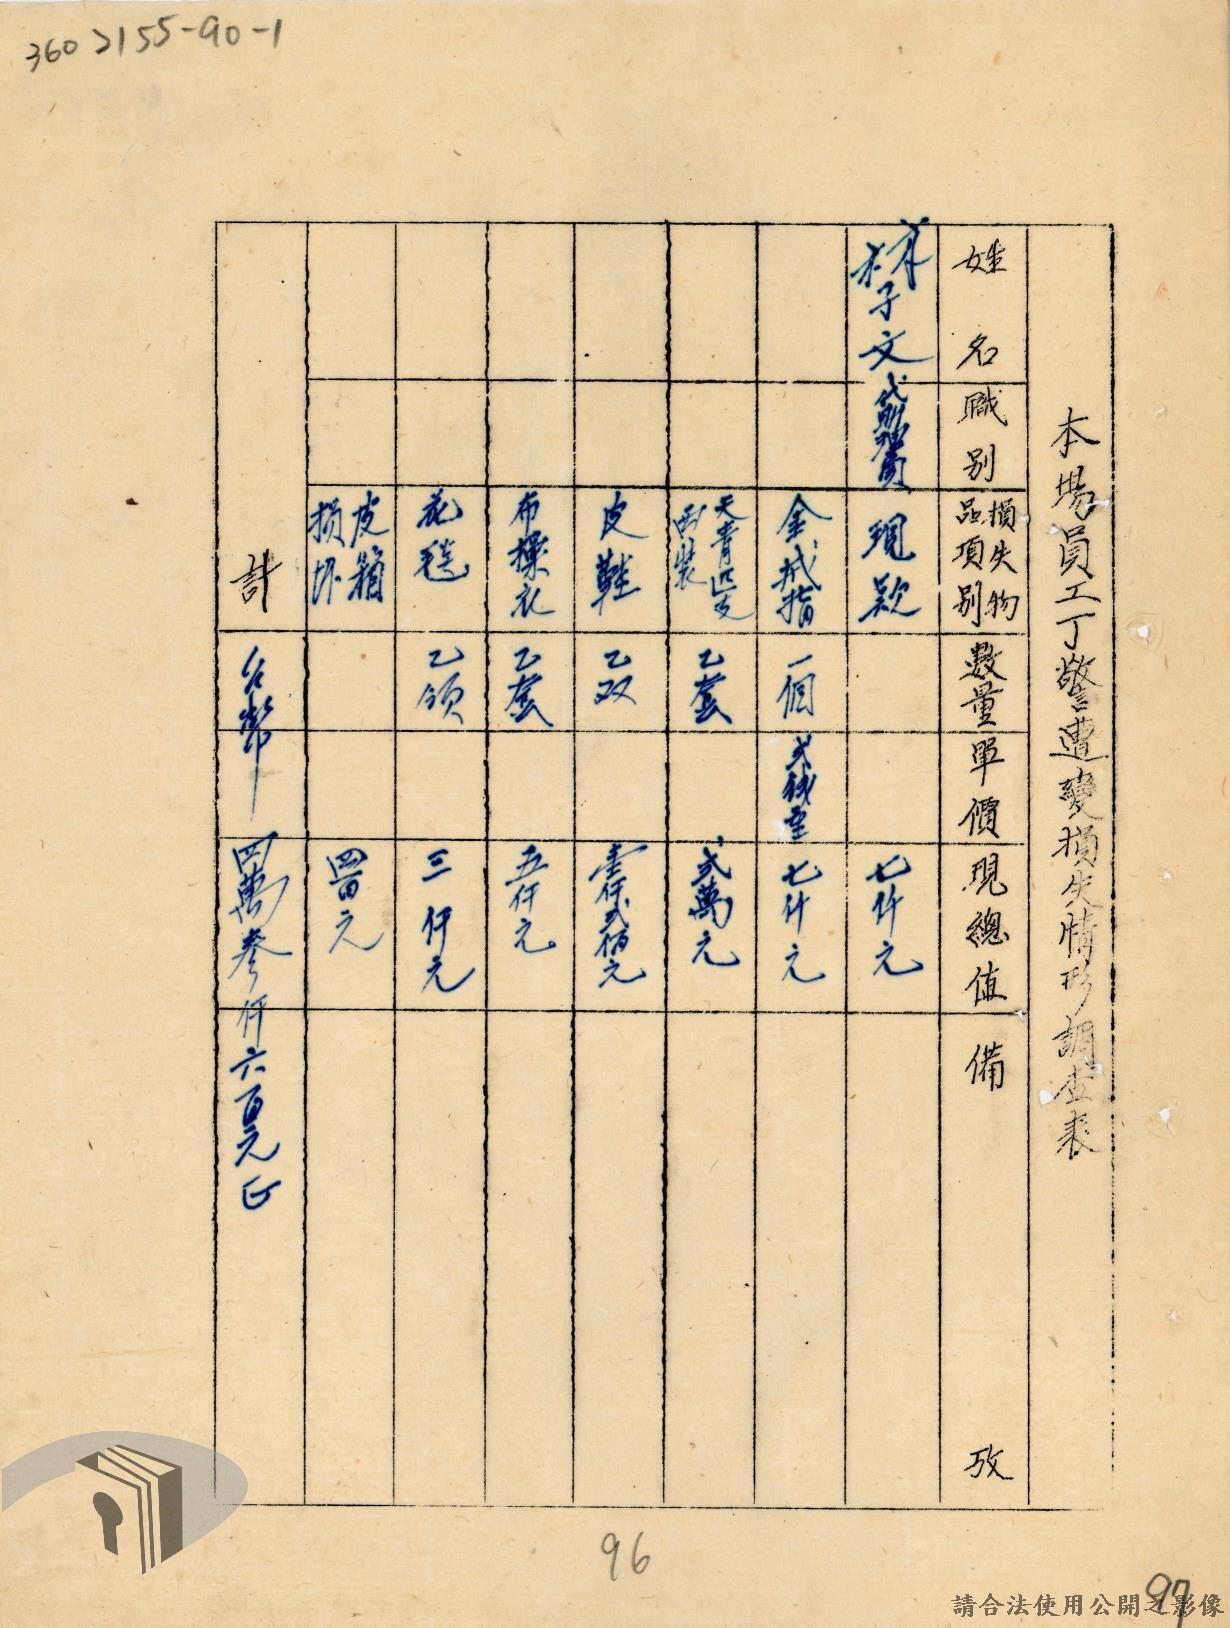 3602155-90-1
本場員工丁警遭變損失情形調查表
姓名
職別
損失物品項別
數量
單價
現總值
備攷
子文
現欵
七仟元
金戒指
一個
七仟元
天青
西裝
乙套
弍萬元
皮鞋
乙双
壹仟弍佰元
布操衣
乙套
五仟元
花毯
乙領
三仟元
皮箱
損坏
四百元
計
台幣
四萬參仟六百元正
96
97
請合法使用公開之影像